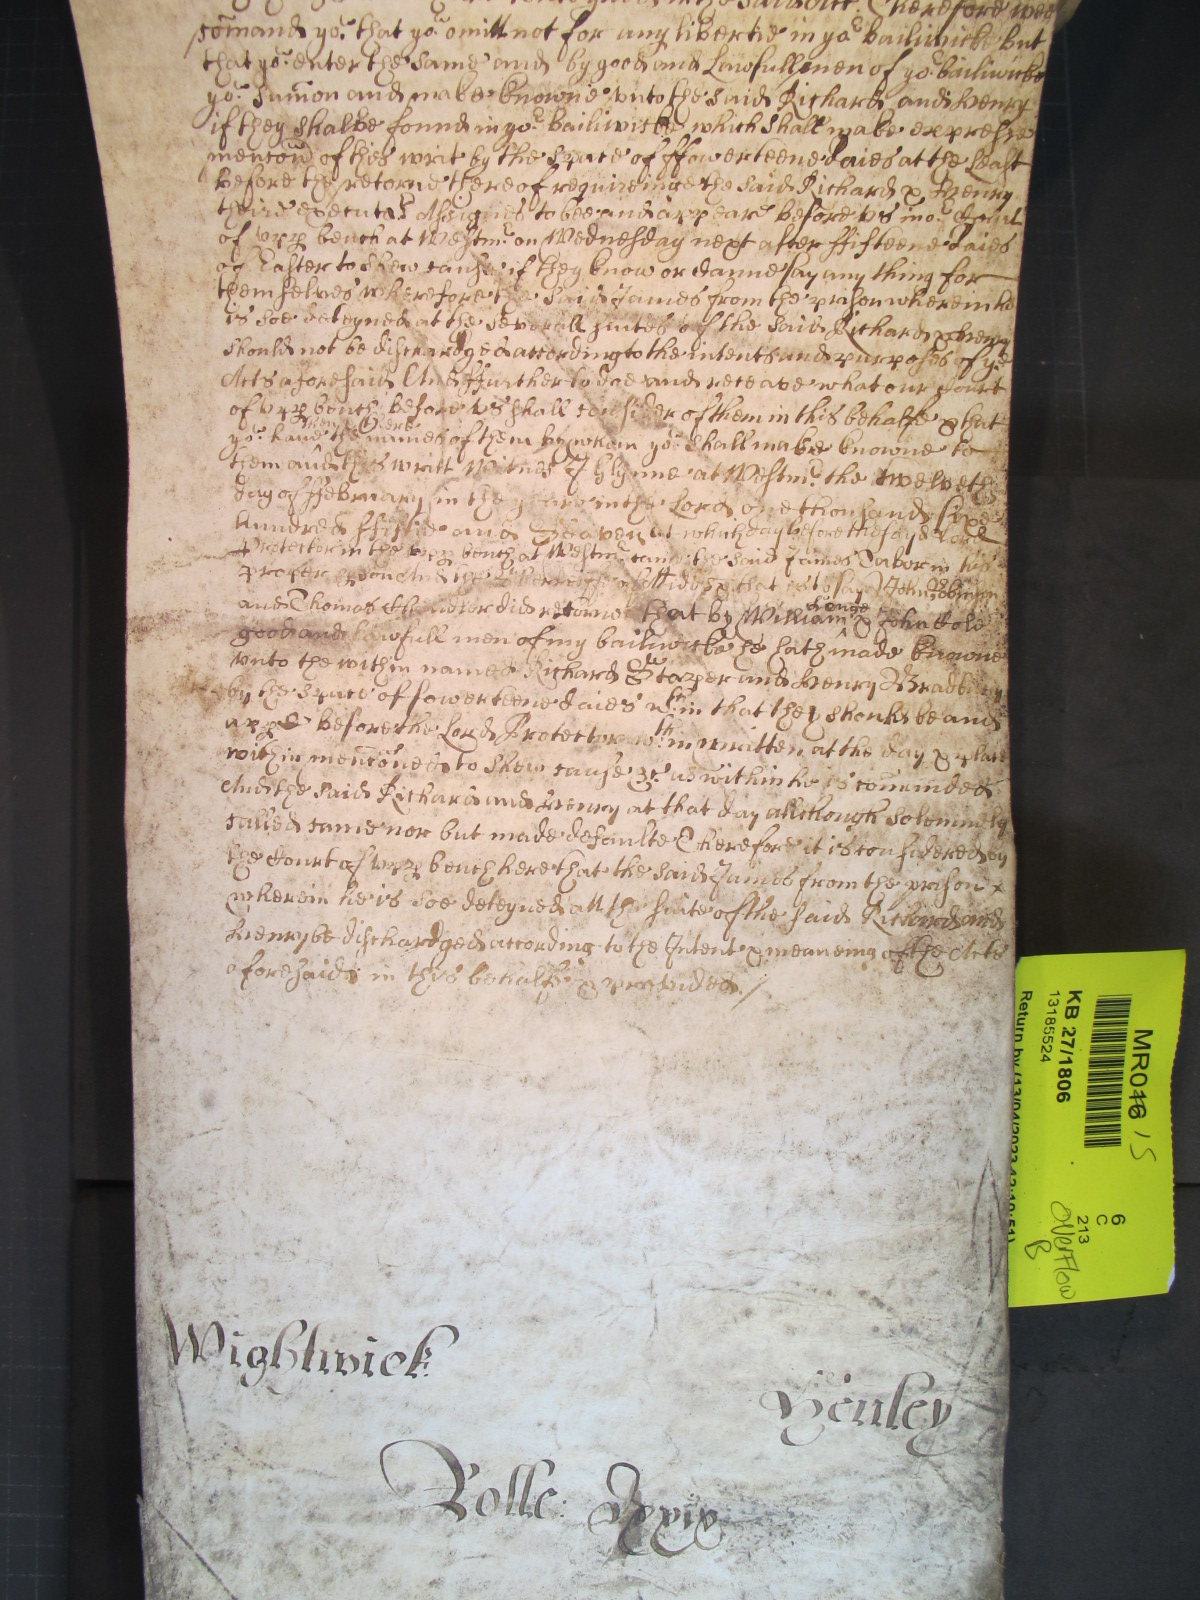 in the said writt Therefore wee
comand yo.r that yo.r omitt not for any libertie in yo.r bailiwicke but
that yo.r enter the same and by good and lawfull men of yo.r bailiwicke
yo.r sumon and make knowne unto the said Richard and Henry
if they shalbe found in yo.r bailiwicke which shall make expresse
mencon of this writ by the space of ffowerteene daies at the least
before the retorne thereof requireinge the said Richard & Henry
their Assignes to bee and appeare before us in o.r Court
of upp bench at Westm.r on Wednesday next after ffifteene daies
of Easter to shew cause if they know or canne say any thing for
themselves wherefore the said James from the prison wherein he
is soe deteyned at the severall suites of the said Richard & Henry
should not be dischardged according to the intents and purposes of ye
Acts aforesaid And ffurther to doe and receave what our Court
of upp bench before us shall consider of them in this behalfe & that
yo.r have then there the names of them by whom yo.r shall make knowne to
them and this writt Witnes J Glynne at Westm.r the twelveth
day of ffebruary in the yeare in the Lord one thousand sixe
hundred ffiftie and Seaven at which day before the sayd Lord
Protector in the upp bench at Westm.r came the said James Tabor in his
proper that is to say John
and Thomas did retorne that by William Longe & John Cole
good and lawfull men of my bailiwicke he hath made knowne
unto the within named Richard Storper and Henry Bradbury
by the space of fowerteene daies w.th in that they should be and
appe before the Lord Protector w.th in written at the day & place
within menconed to shew cause &c as within he is comanded
And the said Richard and Henry at that day although solemnely
called came nor but made defaulte Therefore it is considered by
the Court of upp bench here that the said James from the prison
wherein he is soe deteyned att the suite of the said Richard and
Henry be dischardged according to the Intent & meaneing of the Acts
aforesaid in this behalfe & provided./
Wightwick:
Henley
Rolle: Rxxix
MR046 15
KB 27/1806
13185524
Return by (13/04/2023 12:10:51)
6
C
213
overflow
B